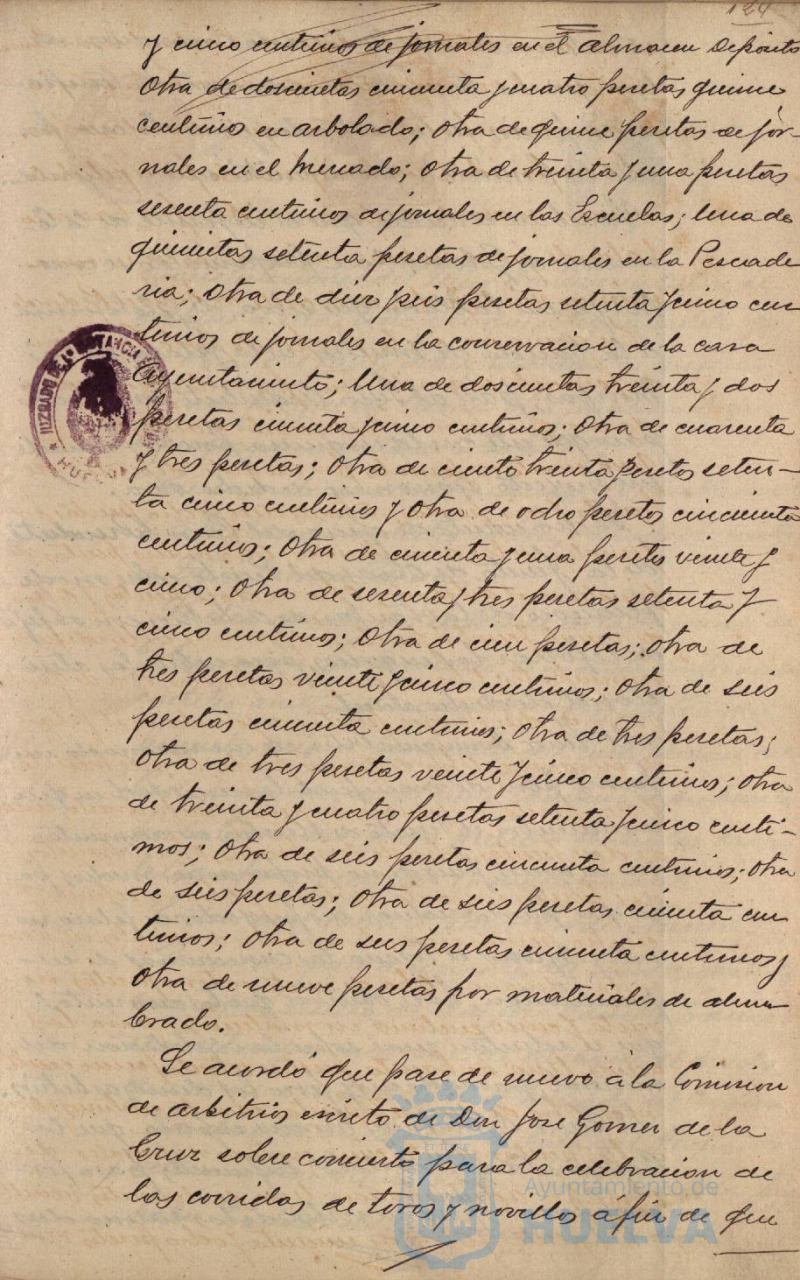 124
y cinco centimos de jornales en el almacen Deposito
Otra de doscientas cincuenta y cuatro pesetas quince
centimos en arbolado; Otra de quince pesetas de jor-
nales en el Mercado; Otra de treinta y una pesetas
sesenta centimos de jornales en las Escuelas; Una de
quinientas setenta pesetas de jornales en la Pescade
ria; Otra de diez y seis pesetas setenta y cinco cen
timos de jornales en la conservacion de la casa
Ayuntamiento; Una de doscientas treinta y dos
pesetas cincuenta y cinco centimos; Otra de cuarenta
y tres pesetas; Otra de ciento treinta pesetas seten-
ta cinco centimos y Otra de ocho pesetas cincuenta
centimos; Otra de cincuenta y una pesetas veinte y
cinco; Otra de sesenta y tres pesetas setenta y
cinco centimos; Otra de cien pesetas; Otra de
tres pesetas veinte y cinco centimos; Otra de seis
pesetas cincuenta centimos; Otra de tres pesetas;
Otra de tres pesetas veinte y cinco centimos; Otra
de treinta y cuatro pesetas setenta y cinco centi-
mos; Otra de seis pesetas cincuenta centimos; Otra
de seis pesetas; Otra de seis pesetas cincuenta cen
timos; Otra de seis pesetas cincuenta centimos y
Otra de nueve pesetas por materiales de alum
brado.
Se acordó que pase de nuevo á la Comision
de arbitrios escrito de Don Jose Gomez de la
Cruz sobre concierto para la celebracion de
las corridas de toros y novillos á fin de que
JUZGADO DE 1ª INSTANCIA
HUELVA
Ayuntamiento de
HUELVA